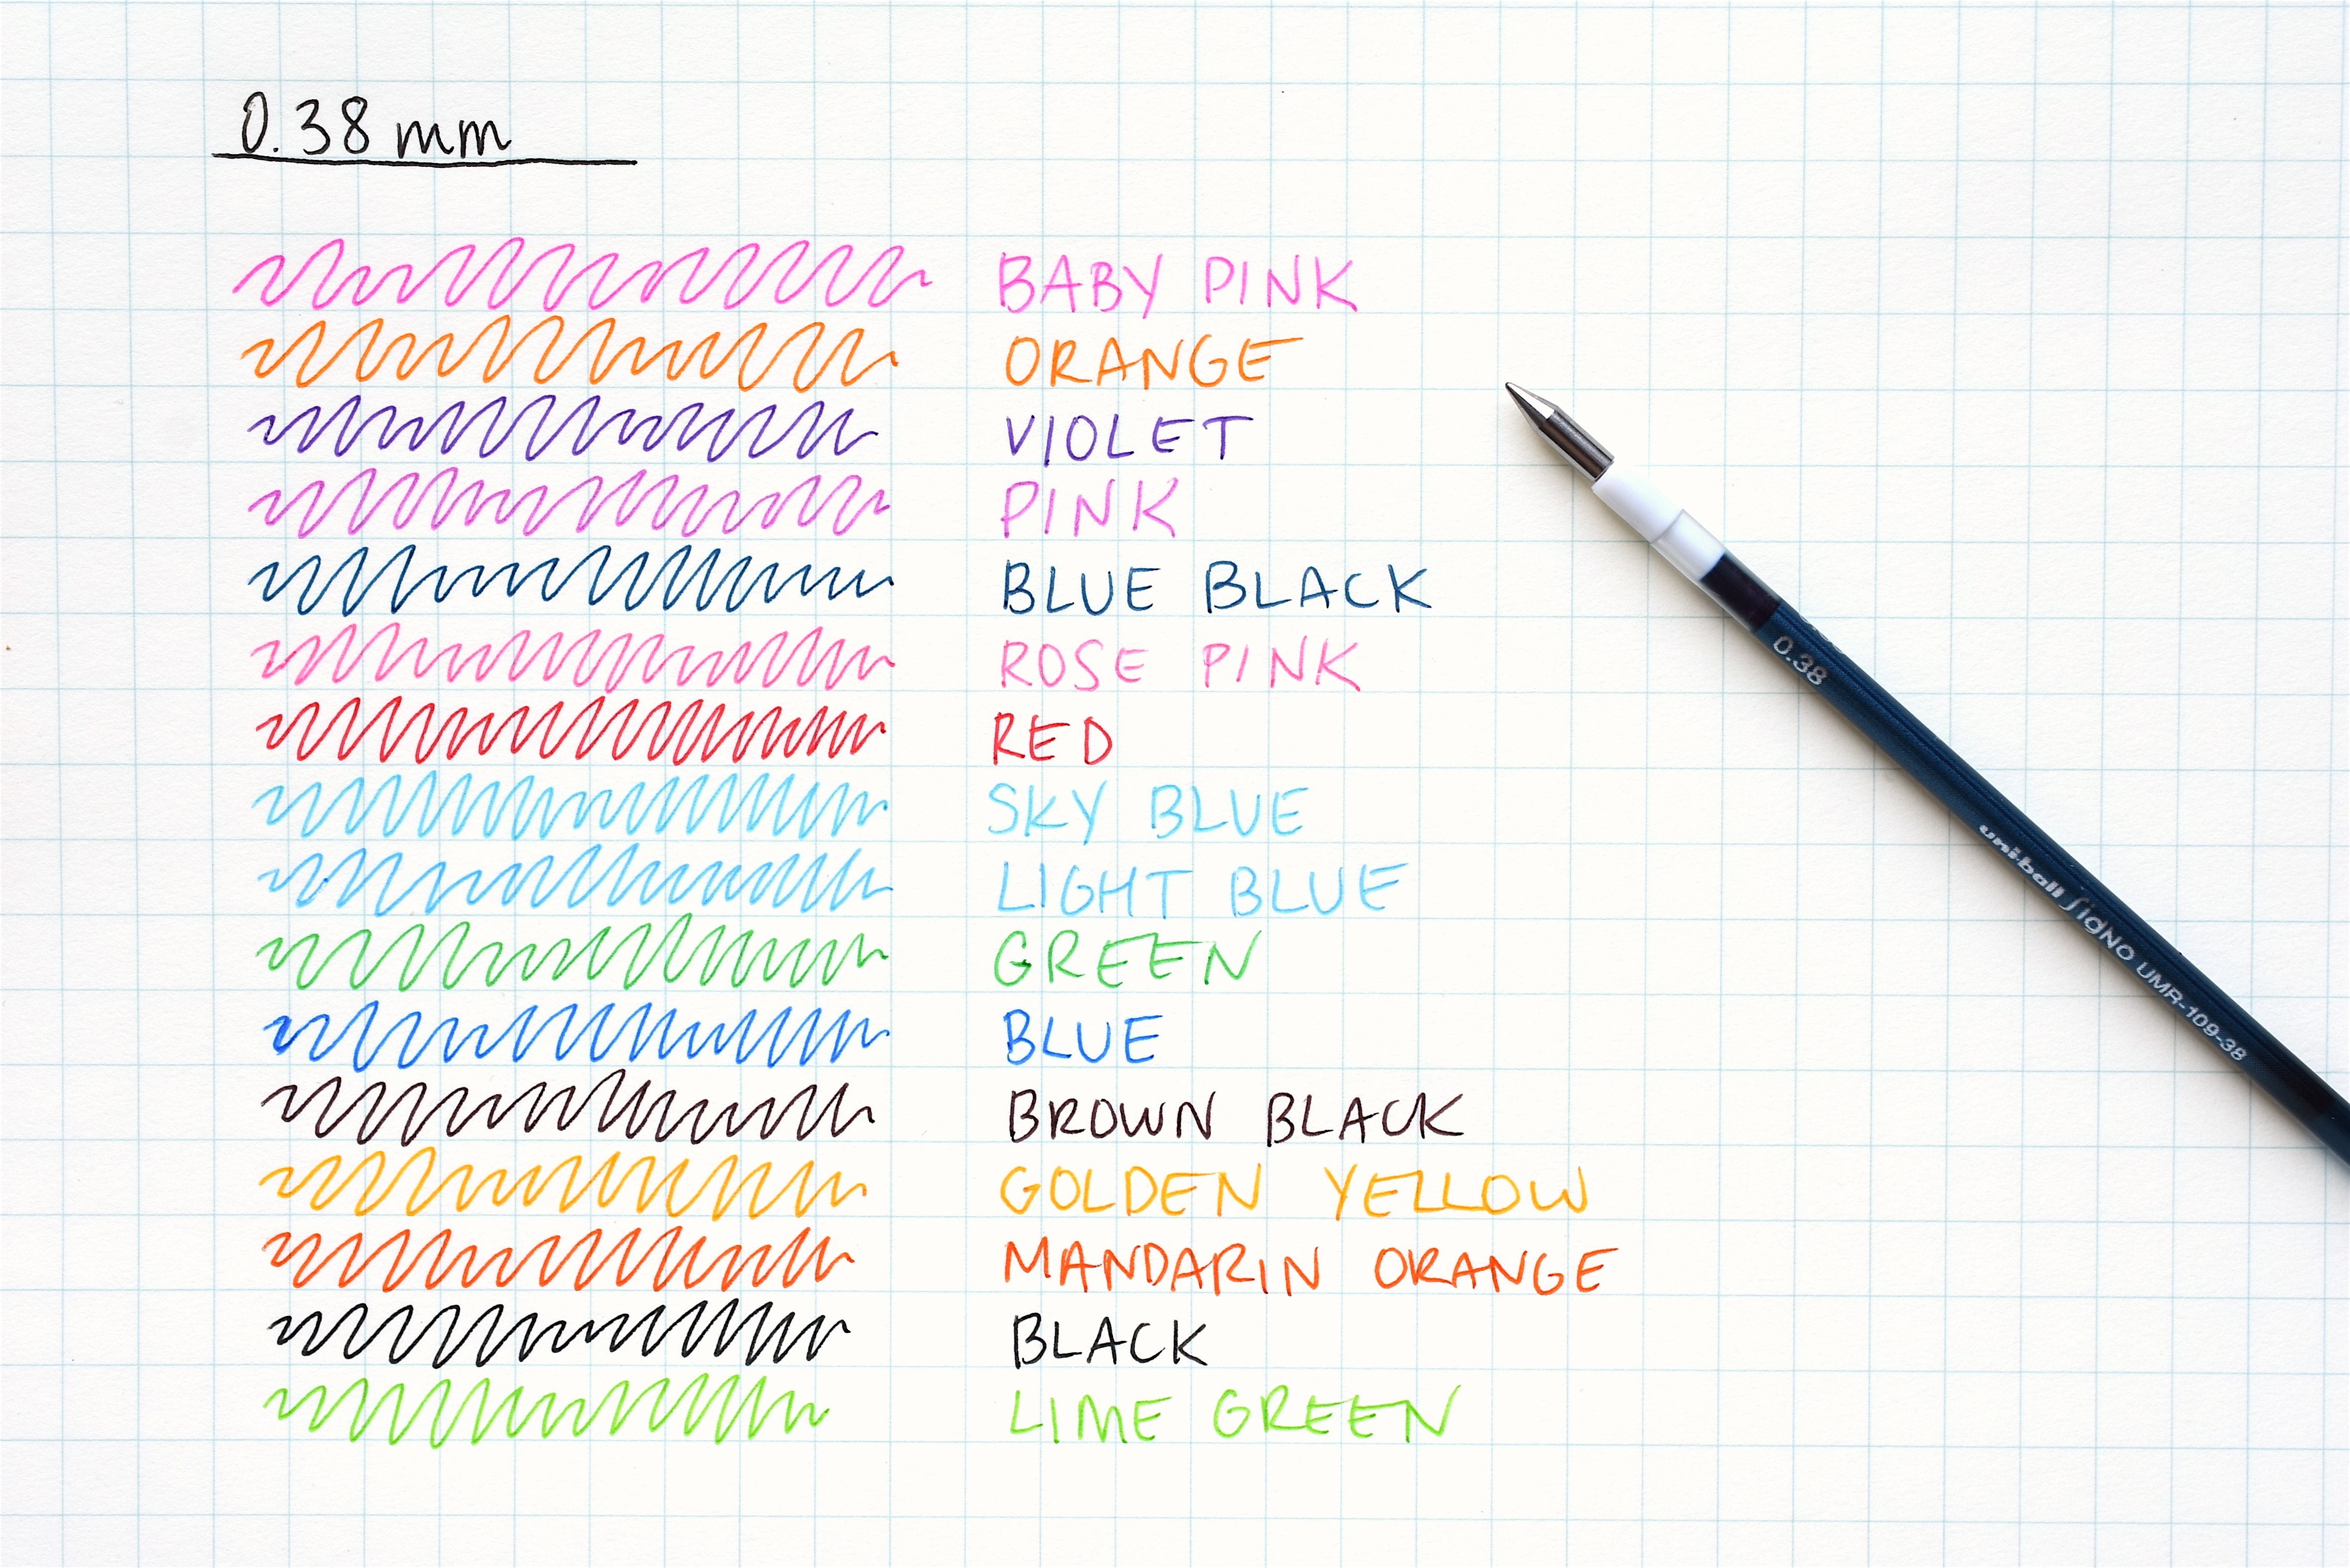 0.38 mm
BABY PINK
ORANGE
VIOLET
PINK
BLUE BLACK
ROSE PINK
RED
SKY BLUE
LIGHT BLUE
GREEN
BLUE
BROWN BLACK
GOLDEN YELLOW
MANDARIN ORANGE
BLACK
LIME GREEN
0.38
uni-ball SigNO UMR-109-38